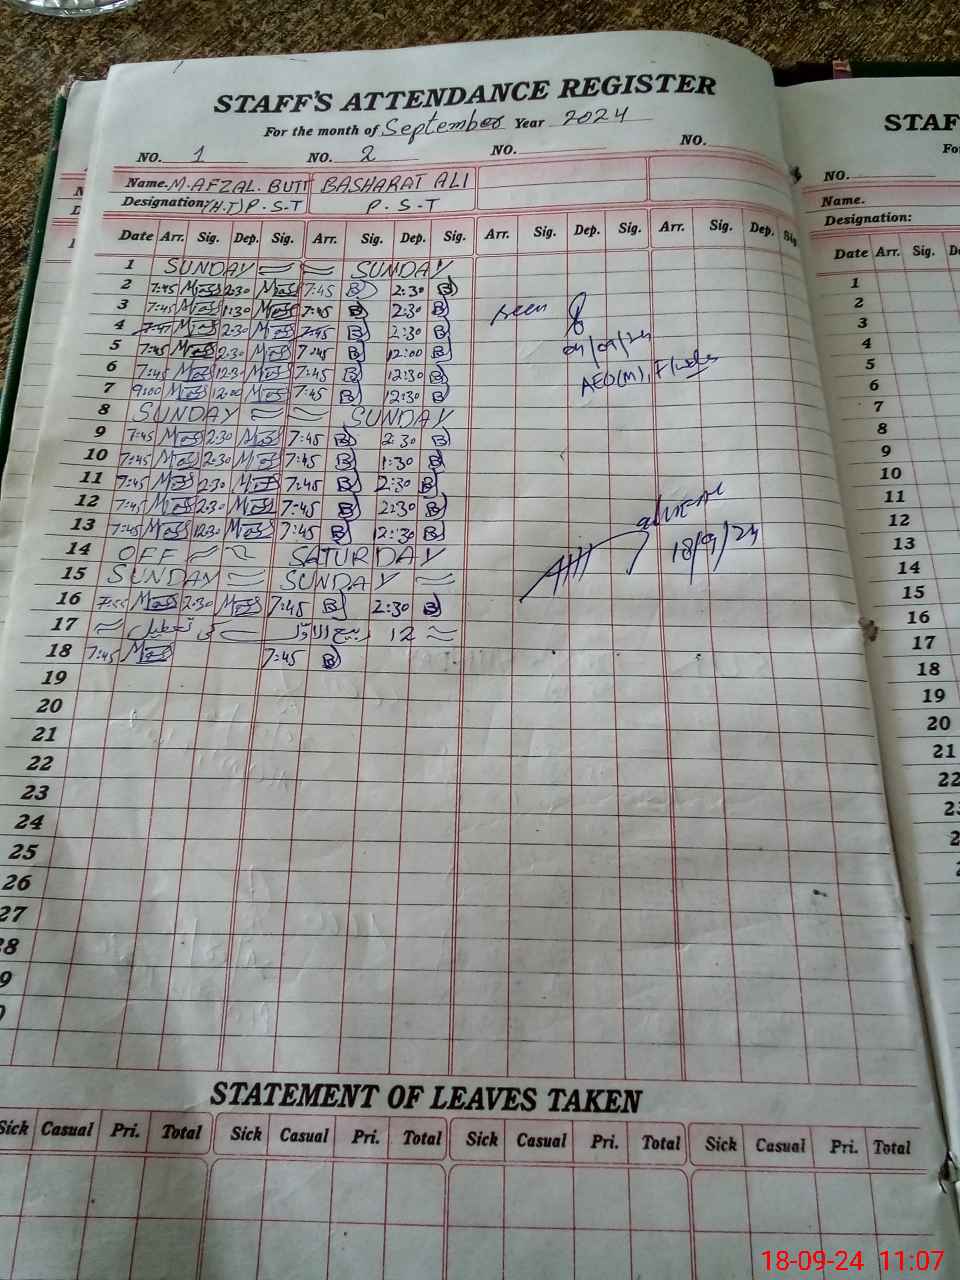 STAFF'S ATTENDANCE REGISTER
For the month of September Year 2024
NO. 1 NO. 2 NO. NO.
Name. M. AFZAL. BUTT BASHARAT ALI
Designation: (H.T) P.S.T P.S.T
Date Arr. Sig. Dep. Sig. Arr. Sig. Dep. Sig. Arr. Sig. Dep. Sig. Arr. Sig. Dep. Sig.
1 SUNDAY SUNDAY
2 7:45 2:30 7:45 B 2:30 B
3 7:45 1:30 7:45 B 2:30 B
4 7:45 2:30 7:45 B 2:30 B
5 7:45 2:30 7:45 B 12:00 B
6 7:45 12:30 7:45 B 12:30 B
7 9:00 12:00 7:45 B 12:30 B
8 SUNDAY SUNDAY
9 7:45 2:30 7:45 B 2:30 B
10 7:45 2:30 7:45 B 1:30 B
11 7:45 2:30 7:45 B 2:30 B
12 7:45 2:30 7:45 B 2:30 B
13 7:45 12:30 7:45 B 12:30 B
14 OFF SATURDAY
15 SUNDAY SUNDAY
16 7:45 2:30 7:45 B 2:30 B
17 12 ربیع الاول کی تعطیل
18 7:45 7:45 B
19
20
21
22
23
24
25
26
27
28
9
seen
04/09/24
AEO(M),
18/9/24
STATEMENT OF LEAVES TAKEN
Sick Casual Pri. Total Sick Casual Pri. Total Sick Casual Pri. Total Sick Casual Pri. Total
STAF
Fo
NO.
Name.
Designation:
Date Arr. Sig. De
1
2
3
4
5
6
7
8
9
10
11
12
13
14
15
16
17
18
19
20
21
22
23
2
18-09-24 11:07